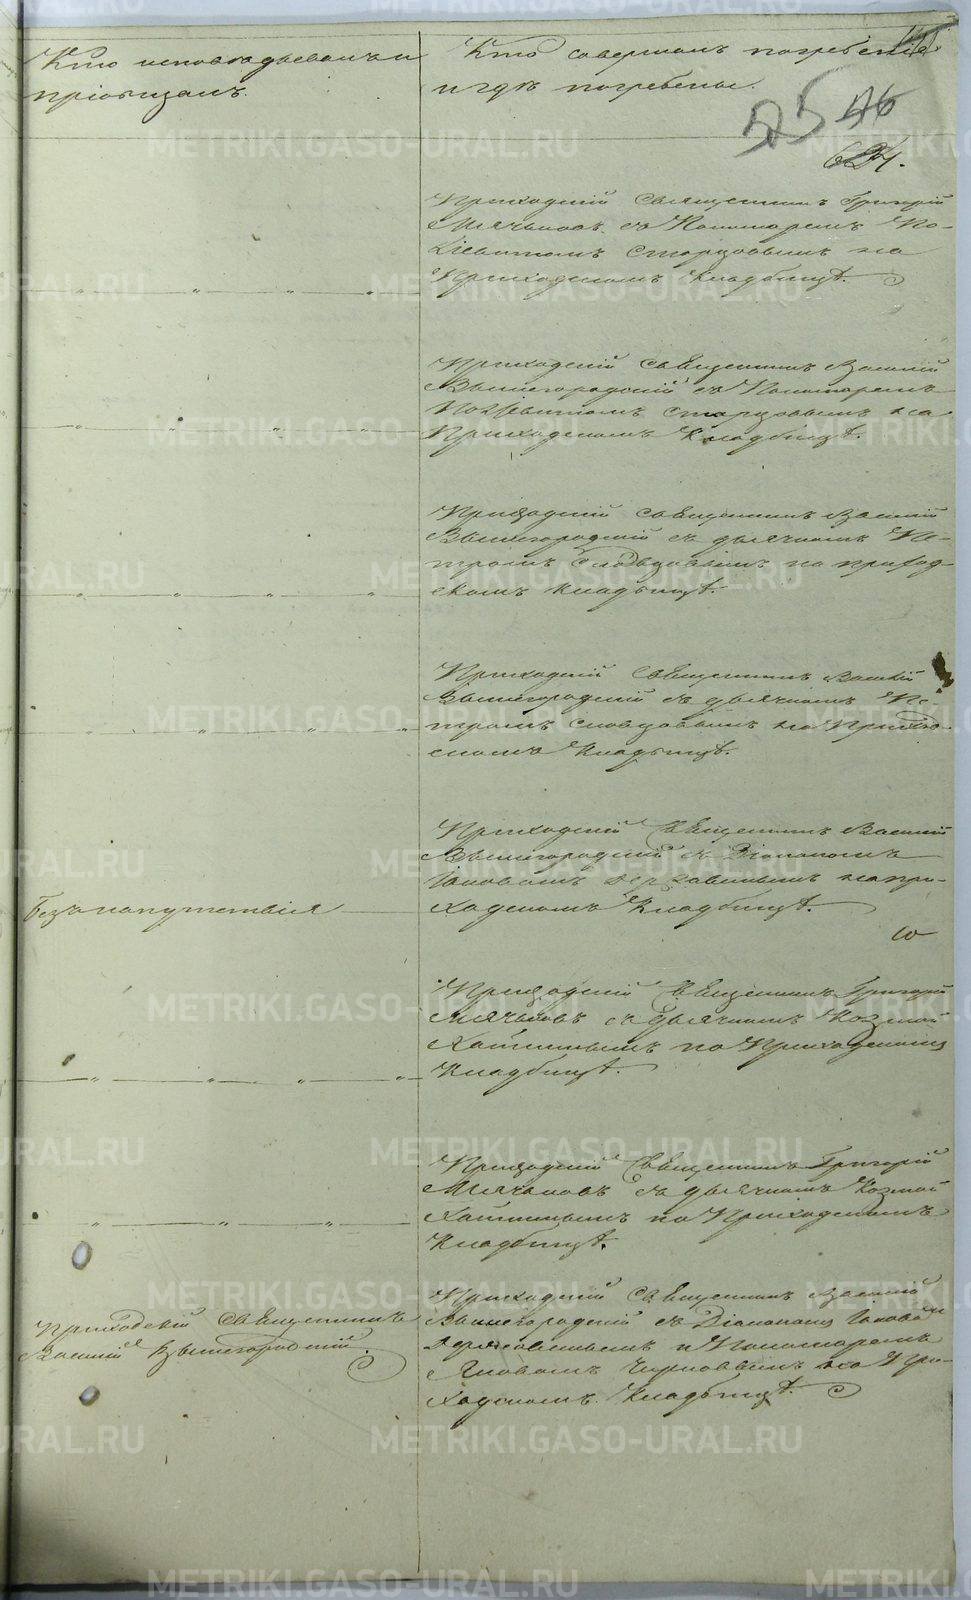 Кто исповѣдывалъ и
пріобщалъ.
Кто совершалъ погребеніе
и гдѣ погребены.
624.
Приходскій Священникъ Григорій
Мячковъ съ Пономаремъ По-
лiевктомъ Старцовымъ на
Приходскомъ Кладбищѣ.
Приходскій священникъ Василій
Вышегородскій съ Пономаремъ
Поліевктомъ Старцовымъ на
Приходскомъ Кладбищѣ.
Приходскій священникъ Василій
Вышегородскій съ дьячкомъ Пе-
тромъ Словцовымъ на приход-
скомъ кладбищѣ.
Приходскій священникъ Василій
Вышегородскій съ дьячкомъ Пе-
тромъ Словцовымъ на Приход-
скомъ Кладбищѣ.
Безъ напутствія
Приходскій Священникъ Василій
Вышегородскій съ Діакономъ
Іаковомъ на при-
ходскомъ Кладбищѣ.
Приходскій Священникъ Григорій
Мячковъ съ дьячкомъ Козмой
на Приходскомъ
Кладбищѣ.
Приходскій Священникъ Григорій
Мячковъ съ дьячкомъ Козмой
на Приходскомъ
Кладбищѣ.
Приходскій Священникъ
Василій Вышегородскій.
Приходскій Священникъ Василій
Вышегородскій съ Діакономъ Іаковомъ
и Пономаремъ
на При-
ходскомъ Кладбищѣ.
METRIKI.GASO-URAL.RU